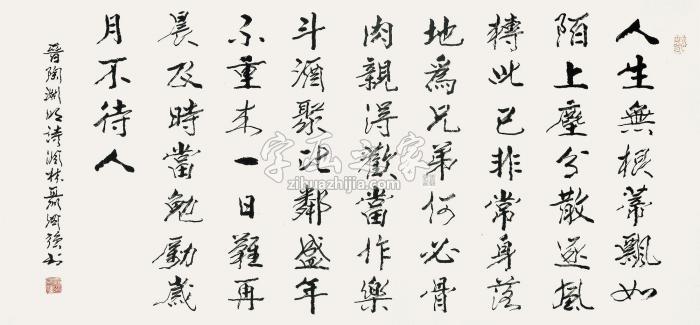 人生無根蒂飄如
陌上塵分散逐風
轉此已非常身落
地爲兄弟何必骨
肉親得歡當作樂
斗酒聚比鄰盛年
不重来一日難再
晨及時當勉勵歲
月不待人
晉陶淵明詩
字画之家
zihuazhijia.com